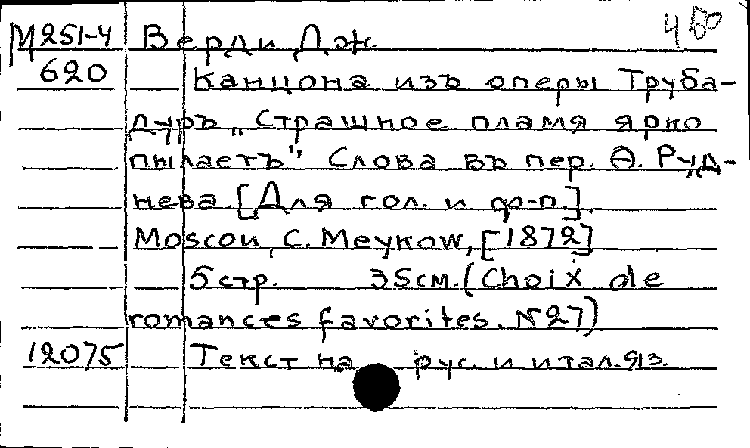 М251-4 Верди Дж. 460
620 Канцона изъ оперы Труба-
дуръ „Страшное пламя ярко
пылаетъ". Слова въ пер. Ѳ. Руд-
нева. [Для гол. и ф-п.].
Moscou, C. Meykow, [1872]
5 стр. 35 см. (Choix de
romances favorites. №27)
12075 Текст на рус. и итал. яз.